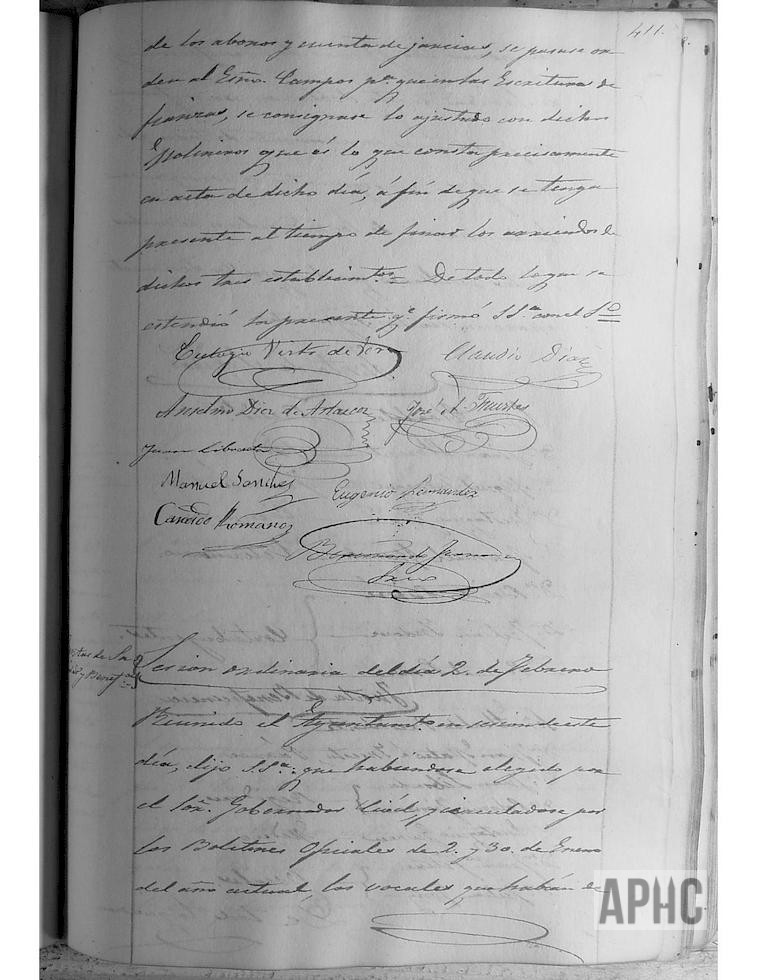 411.
de los abonos y cuenta de jancias, se pasase or
den al Esno. Campos pa. que en las Escrituras de
fianzas, se consignase lo ajustado con dichos
Molineros que és lo que consta precisamente
en acta de dicho día, á fin de que se tenga
presente al tiempo de finar los arriendos de
dichos tres establecimtos. De todo lo que se
estendió la presente qe. firmó SSa. con el So
Eulogio de Vera Claudio Diaz
Anselmo Diez de Artacoz José A. Huertas
Juan
Manuel Sanchez Eugenio Fernandez
Candido Romano
Saiz
Juntas de Sa
y Benefa
Sesion ordinaria del día 2. de Febrero
Reunido el Ayuntamto. en sesion de este
día, dijo S.Sa. que habiendose elegido por
el Sor. Gobernador Civil, y circuladose por
los Boletines Oficiales de 2. y 30. de Enero
del año actual, los vocales que habían de
APHC